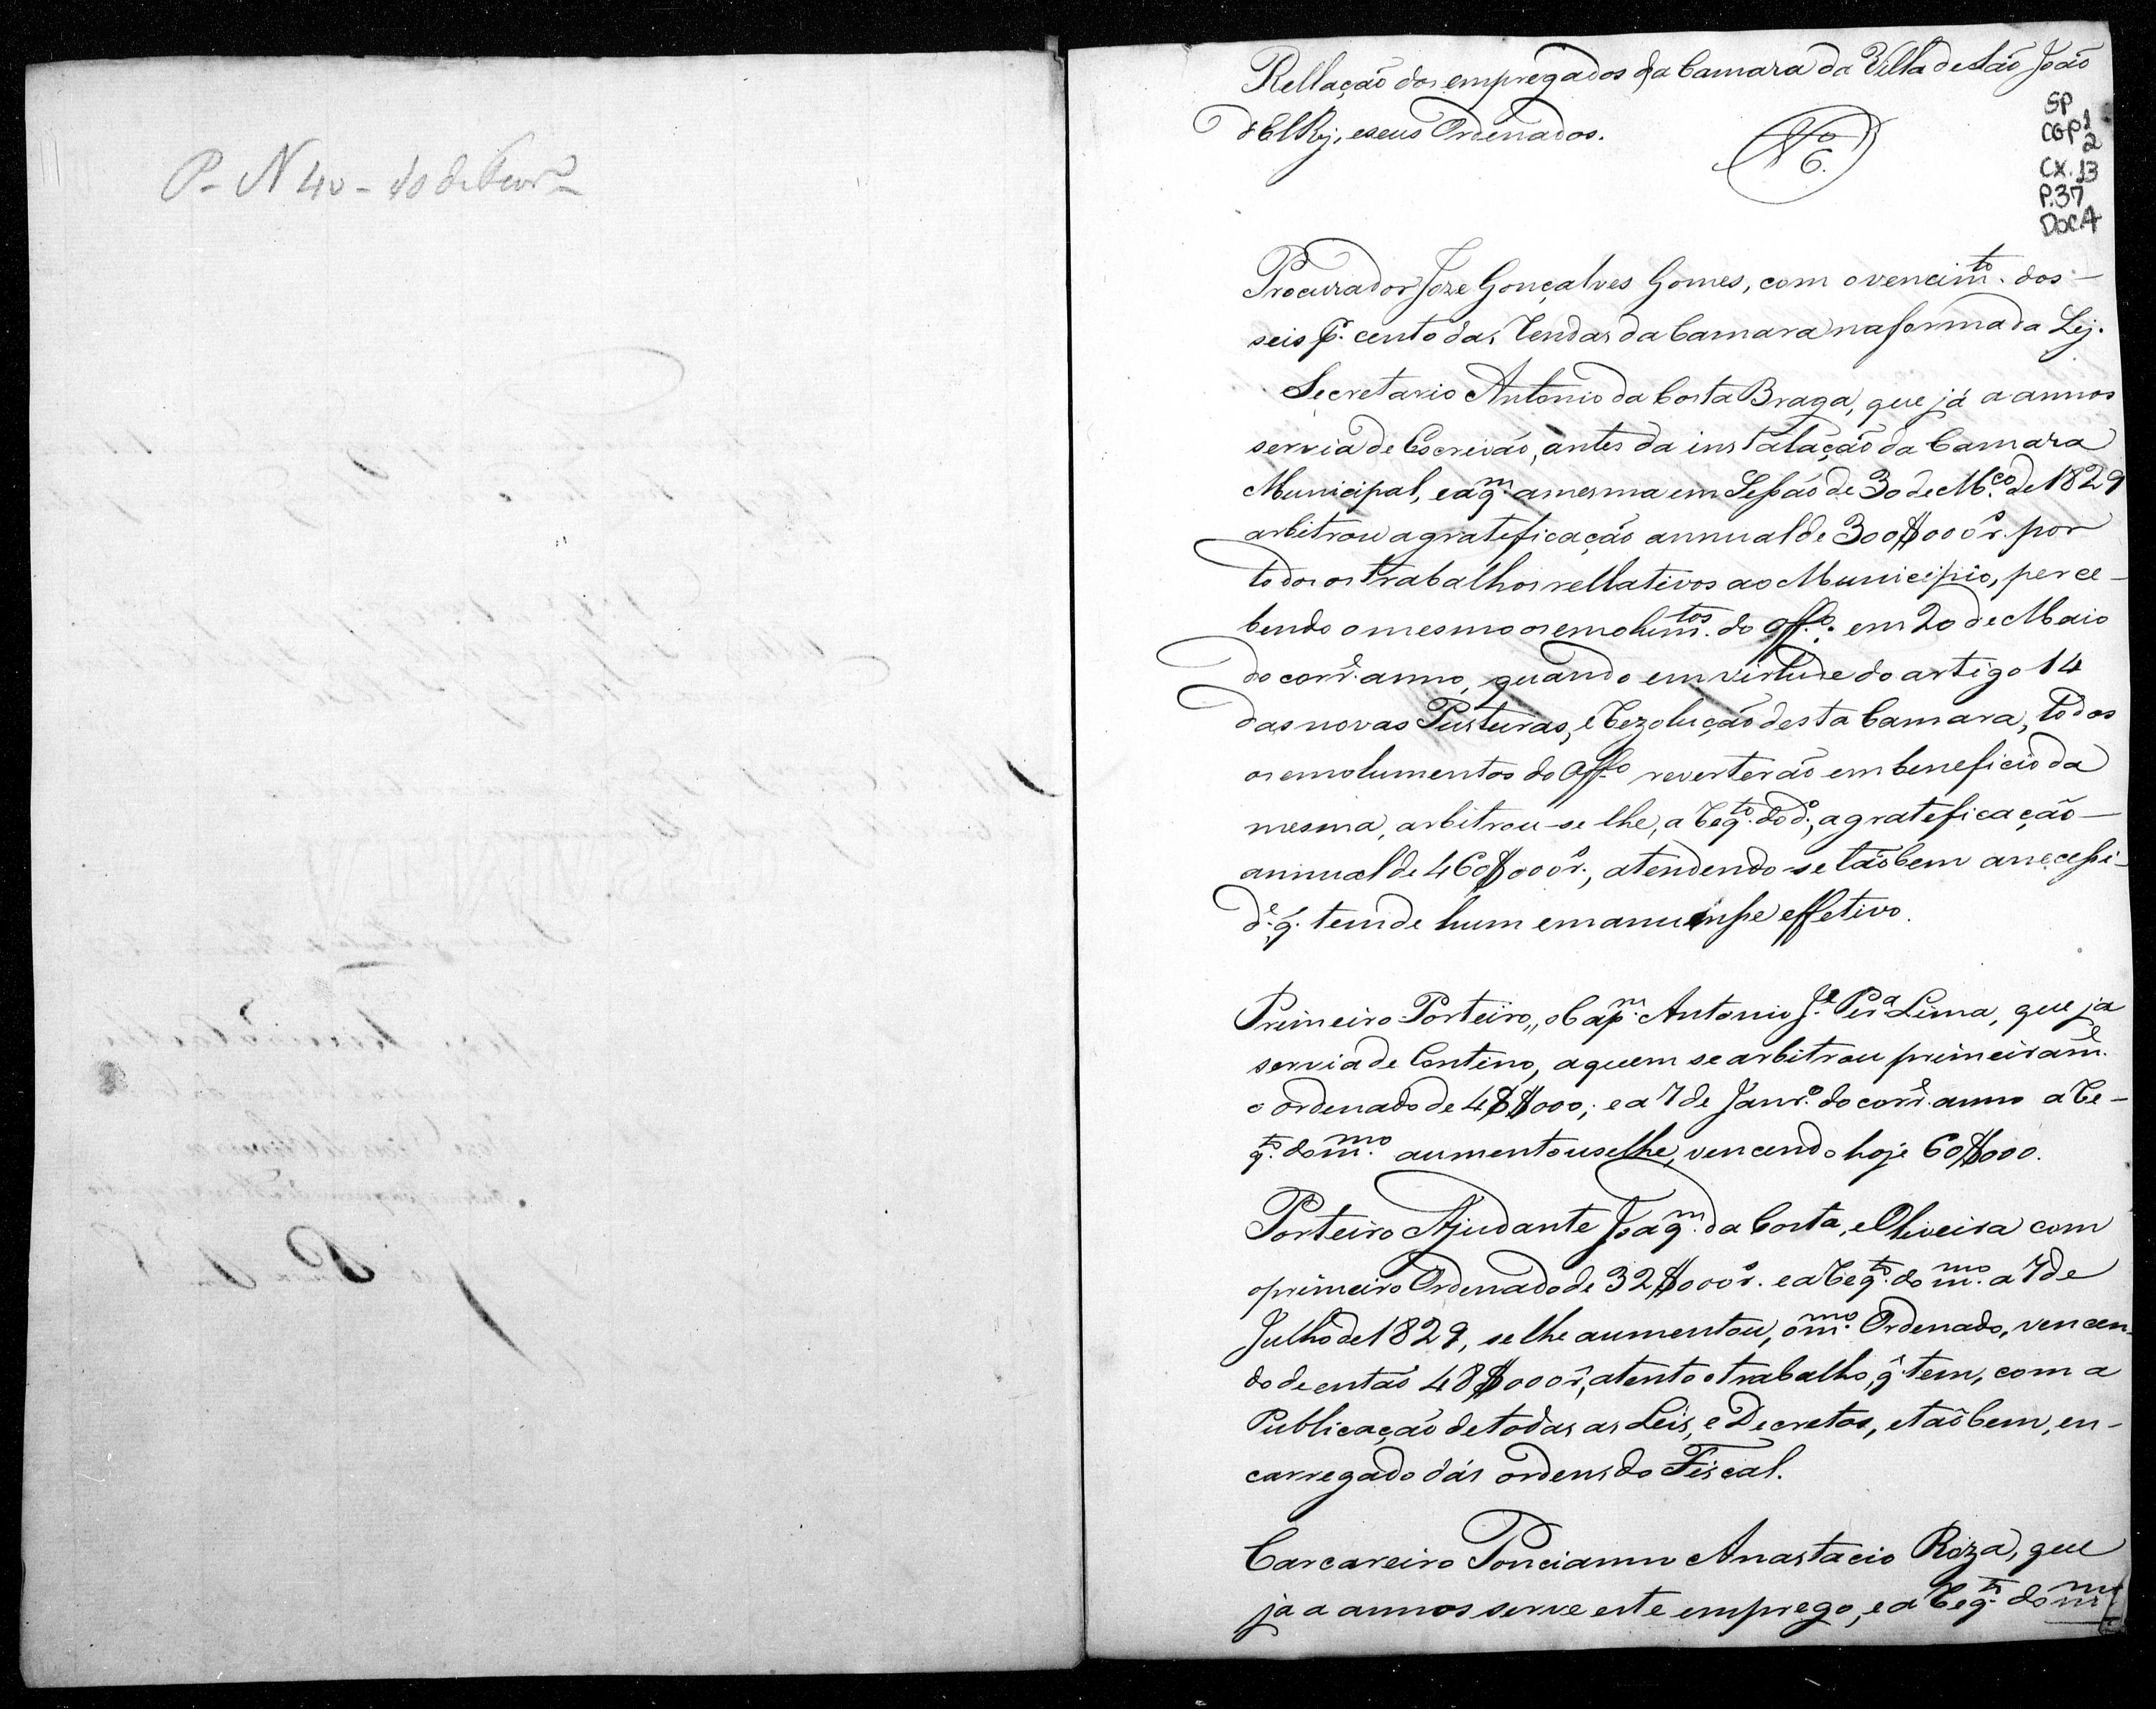 P. N 40 - 10 de Fevro
Rellação dos empregados da Camara da Villa de São João
d'ElRej, e seus Ordenados.
No 6.
SP
CGP 1
2
CX. 13
P. 37
DOC. 4
Procurador Joze Gonçalves Gomes, com o vencimto. dos -
seis p. cento das Rendas da Camara na forma da Lej.
Secretario Antonio da Costa Braga, que já a annos
servia de Escrivão, antes da instalação da Camara
Municipal, e a qm. a mesma em Sessão de 30 de Mço. de 1829
arbitrou a gratificação annual de 300$000 rs. por
todos os trabalhos rellativos ao Municipio, perce-
bendo o mesmo os emolumtos. do offo.: em 20 de Maio
do corre. anno, quando em virtude do artigo 14
das novas Pusturas, e Rezolução desta Camara, todos
os emolumentos do Offo. reverterão em beneficio da
mesma, arbitrou-se lhe, a Reqto. do do., a gratificação -
annual de 460$000 rs., atendendo-se tãobem a necessi-
de. q. tem de hum emanuensse effetivo.
Primeiro Porteiro,, o Capm. Antonio Je. Pera. Lima, que ja
servia de Contino, a quem se arbitrou primeirame.
o ordenado de 48$000; e a 7 de Janro. do corre. anno a Re-
qto. do mmo. aumentouselhe, vencendo hoje 60$000.
Porteiro Ajudante Joaqm. da Costa, e Oliveira com
o primeiro Ordenado de 32$000 rs. e a Reqto. do mmo. a 7 de
Julho de 1829, se lhe aumentou, o mmo. Ordenado, vencen-
do de então 48$000 rs, atento o trabalho, q. tem, com a
Publicação de todas as Leis, e Decretos, e tãobem, en-
carregado das ordens do Fiscal.
Carcareiro Ponciannu Anastacio Roza, que
ja a annos serve este emprego, e a Reqto. do mmo.